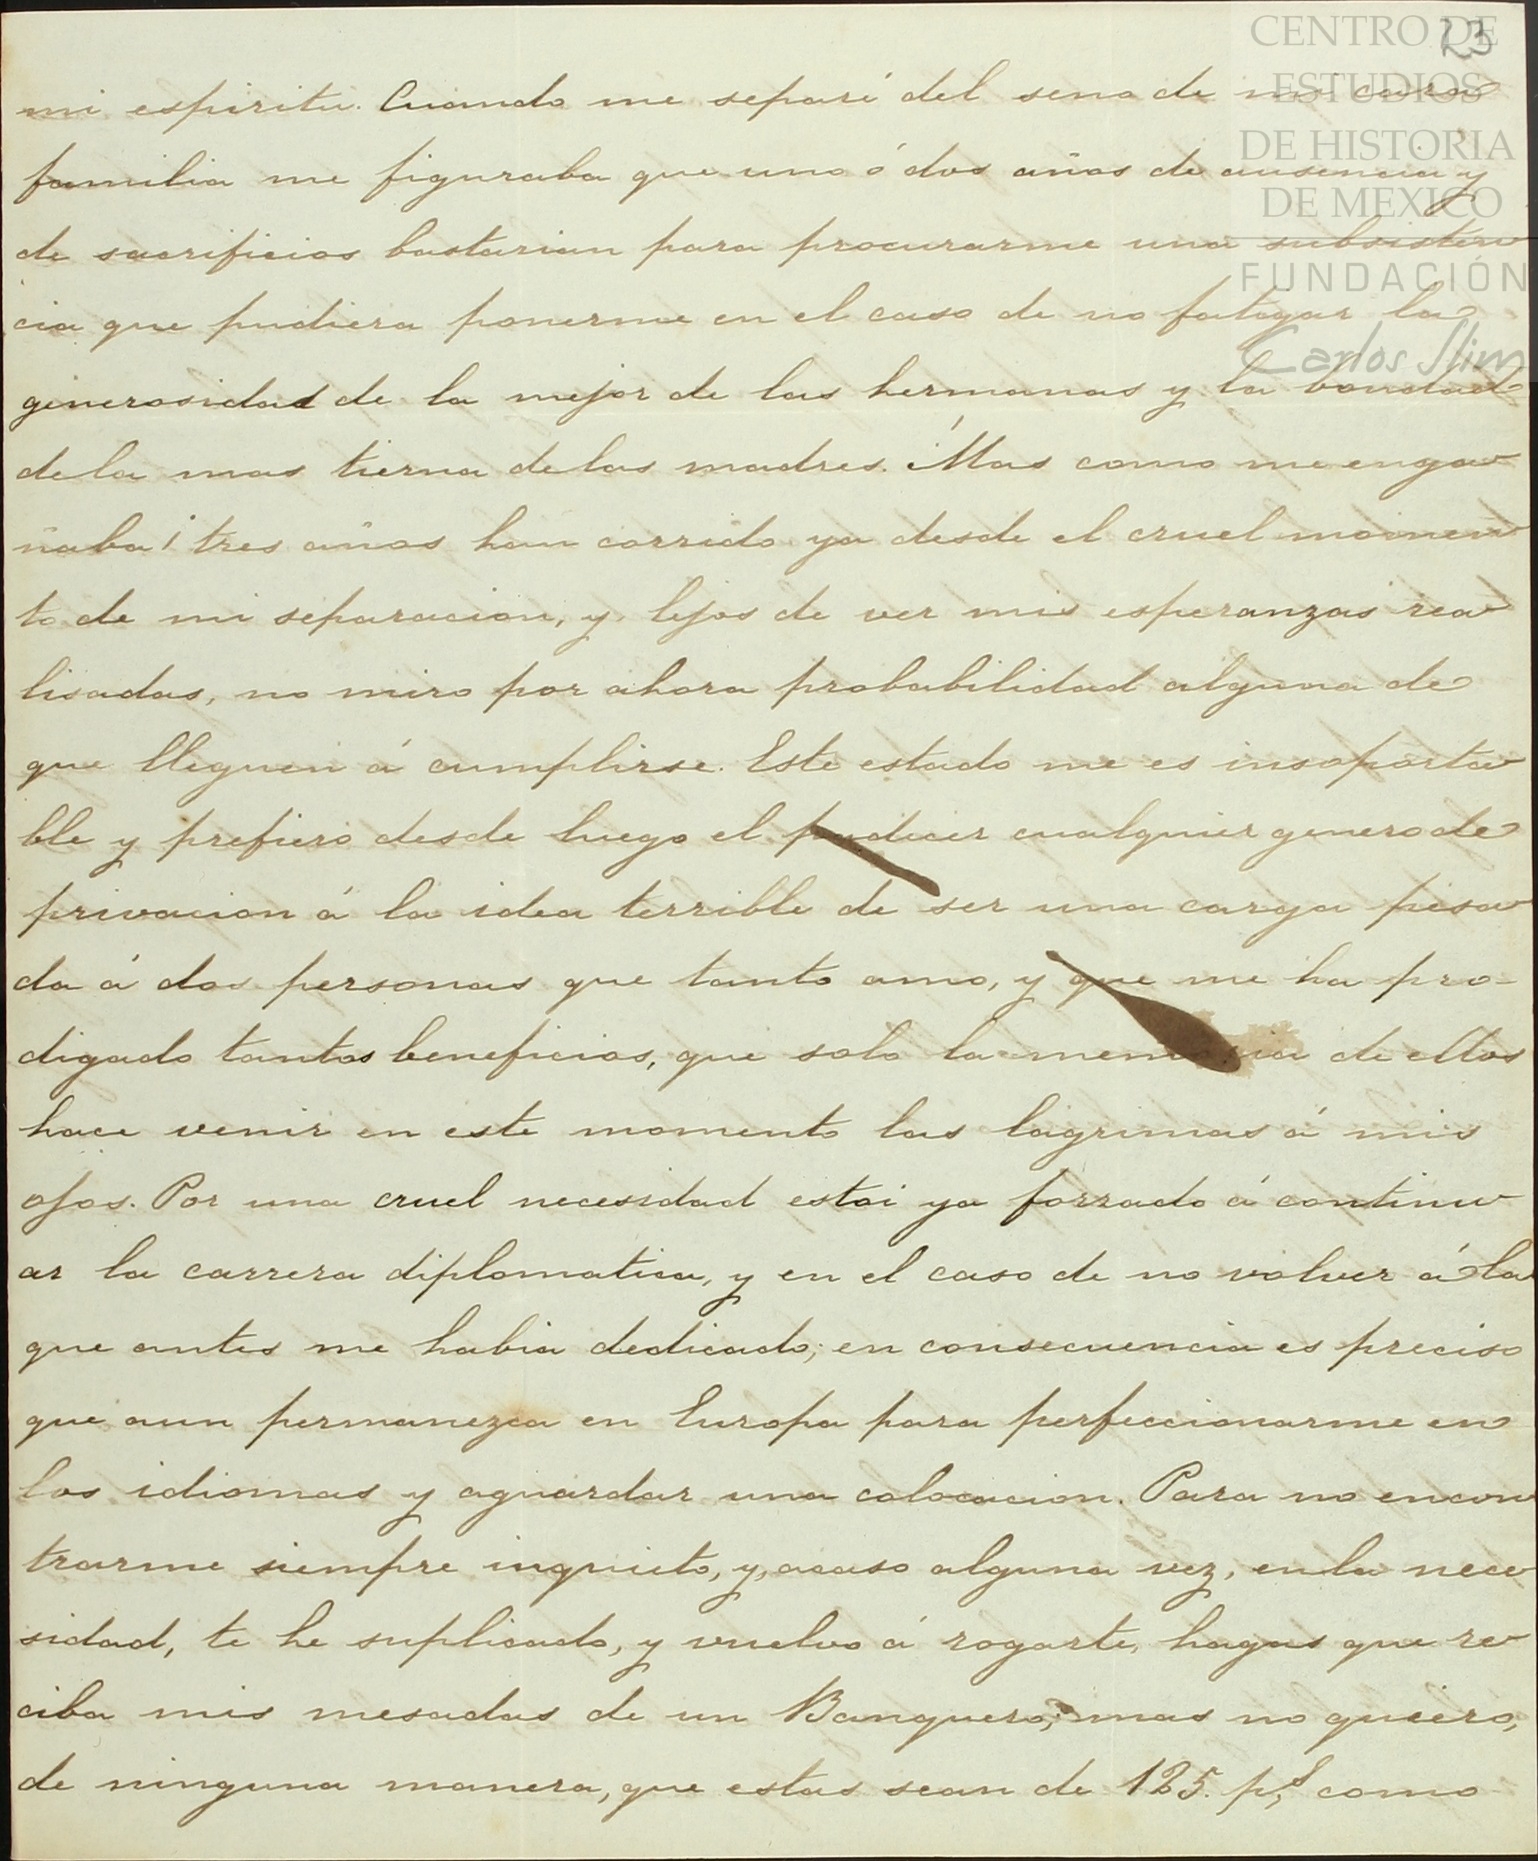 CENTRO DE
ESTUDIOS
DE HISTORIA
DE MEXICO
FUNDACIÓN
Carlos Slim
23
mi espiritu. Cuando me separé del seno de mi cara
familia me figuraba que uno ó dos años de ausencia y
de sacrificios bastarian para procurarme una subsisten
cia que pudiera ponerme en el caso de no fatigar la
generosidad de la mejor de las hermanas y la bondad
de la mas tierna de las madres. ¡Mas como me enga
ñaba! tres años han corrido ya desde el cruel momen
to de mi separacion, y lejos de ver mis esperanzas rea
lisadas, no miro por ahora probabilidad alguna de
que lleguen á cumplirse. Este estado me es insoporta
ble y prefiero desde luego el padecer cualquier genero de
privacion á la idea terrible de ser una carga pesa
da á dos personas que tanto amo, y que me ha pro-
digado tantos beneficios, que solo la memoria de ellos
hace venir en este momento las lagrimas á mis
ojos. Por una cruel necesidad estoi ya forzado á continu
ar la carrera diplomatica, y en el caso de no volver á la
que antes me habia dedicado; en consecuencia es preciso
que aun permanezca en Europa para perfeccionarme en
los idiomas y aguardar una colocacion. Para no encon
trarme siempre inquieto, y, acaso alguna vez, en la nece
sidad, te he suplicado, y vuelvo á rogarte, hagas que re
ciba mis mesadas de un Banquero; mas no quiero,
de ninguna manera, que estas sean de 125. p.s como